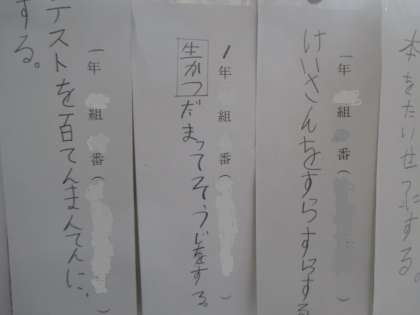 本をたいせつにする。
一年 組 番(
けいさんをすらすらする
1年 組 番( )
生かつ だまってそうじをする。
一年 組 番( )
テストを百てんまんてんに、
する。